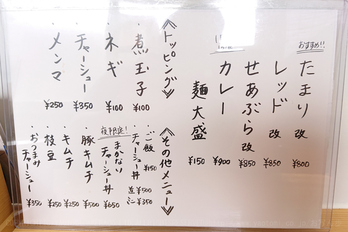 おすすめ!!
たまり 改 ¥800
レッド 改 ¥850
せあぶら 改 ¥850
カレー ¥900
麺大盛 ¥150
≪トッピング≫
・煮玉子 ¥100
・ネギ ¥100
・チャーシュー ¥350
・メンマ ¥250
≪その他メニュー≫
・ご飯 ¥150
・チャーシュー丼 並¥500 ミニ¥350
夜限定!
・まかないチャーシュー丼 ¥500
・豚キムチ ¥650
・キムチ ¥250
・枝豆 ¥250
・おつまみチャーシュー ¥550